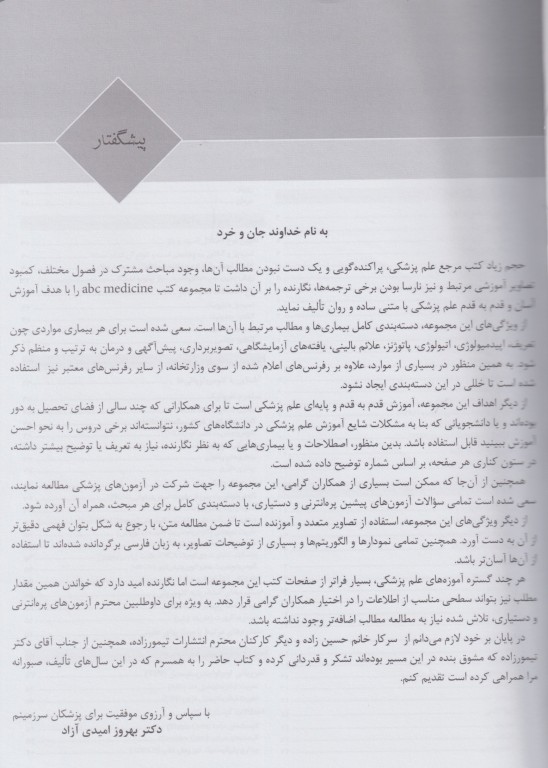 پیشگفتار
به نام خداوند جان و خرد
حجم زیاد کتب مرجع علم پزشکی، پراکنده‌گویی و یک دست نبودن مطالب آن‌ها، وجود مباحث مشترک در فصول مختلف، کمبود
تصاویر آموزشی مرتبط و نیز نارسا بودن برخی ترجمه‌ها، نگارنده را بر آن داشت تا مجموعه کتب abc medicine را با هدف آموزش
آسان و قدم به قدم علم پزشکی با متنی ساده و روان تألیف نماید.
از ویژگی‌های این مجموعه، دسته‌بندی کامل بیماری‌ها و مطالب مرتبط با آن‌ها است. سعی شده است برای هر بیماری مواردی چون
تعریف، اپیدمیولوژی، اتیولوژی، پاتوژنز، علائم بالینی، یافته‌های آزمایشگاهی، تصویربرداری، پیش‌آگهی و درمان به ترتیب و منظم ذکر
شود. به همین منظور در بسیاری از موارد، علاوه بر رفرنس‌های اعلام شده از سوی وزارتخانه، از سایر رفرنس‌های معتبر نیز استفاده
شده است تا خللی در این دسته‌بندی ایجاد نشود.
از دیگر اهداف این مجموعه، آموزش قدم به قدم و پایه‌ای علم پزشکی است تا برای همکارانی که چند سالی از فضای تحصیل به دور
بوده‌اند و یا دانشجویانی که بنا به مشکلات شایع آموزش علم پزشکی در دانشگاه‌های کشور، نتوانسته‌اند برخی دروس را به نحو احسن
آموزش ببینید قابل استفاده باشد. بدین منظور، اصطلاحات و یا بیماری‌هایی که به نظر نگارنده، نیاز به تعریف یا توضیح بیشتر داشته،
در ستون کناری هر صفحه، بر اساس شماره توضیح داده شده است.
همچنین از آن‌جا که ممکن است بسیاری از همکاران گرامی، این مجموعه را جهت شرکت در آزمون‌های پزشکی مطالعه نمایند،
سعی شده است تمامی سؤالات آزمون‌های پیشین پره‌انترنی و دستیاری، با دسته‌بندی کامل برای هر مبحث، همراه آن آورده شود.
از دیگر ویژگی‌های این مجموعه، استفاده از تصاویر متعدد و آموزنده است تا ضمن مطالعه متن، با رجوع به شکل بتوان فهمی دقیق‌تر
از آن به دست آورد. همچنین تمامی نمودارها و الگوریتم‌ها و بسیاری از توضیحات تصاویر، به زبان فارسی برگردانده شده‌اند تا استفاده
از آن‌ها آسان‌تر باشد.
هر چند گستره آموزه‌های علم پزشکی، بسیار فراتر از صفحات کتب این مجموعه است اما نگارنده امید دارد که خواندن همین مقدار
مطلب نیز بتواند سطحی مناسب از اطلاعات را در اختیار همکاران گرامی قرار دهد. به ویژه برای داوطلبین محترم آزمون‌های پره‌انترنی
و دستیاری، تلاش شده نیاز به مطالعه مطالب اضافه‌تر وجود نداشته باشد.
در پایان بر خود لازم می‌دانم از سرکار خانم حسین زاده و دیگر کارکنان محترم انتشارات تیمورزاده، همچنین از جناب آقای دکتر
تیمورزاده که مشوق بنده در این مسیر بوده‌اند تشکر و قدردانی کرده و کتاب حاضر را به همسرم که در این سال‌های تألیف، صبورانه
مرا همراهی کرده است تقدیم کنم.
با سپاس و آرزوی موفقیت برای پزشکان سرزمینم
دکتر بهروز امیدی آزاد